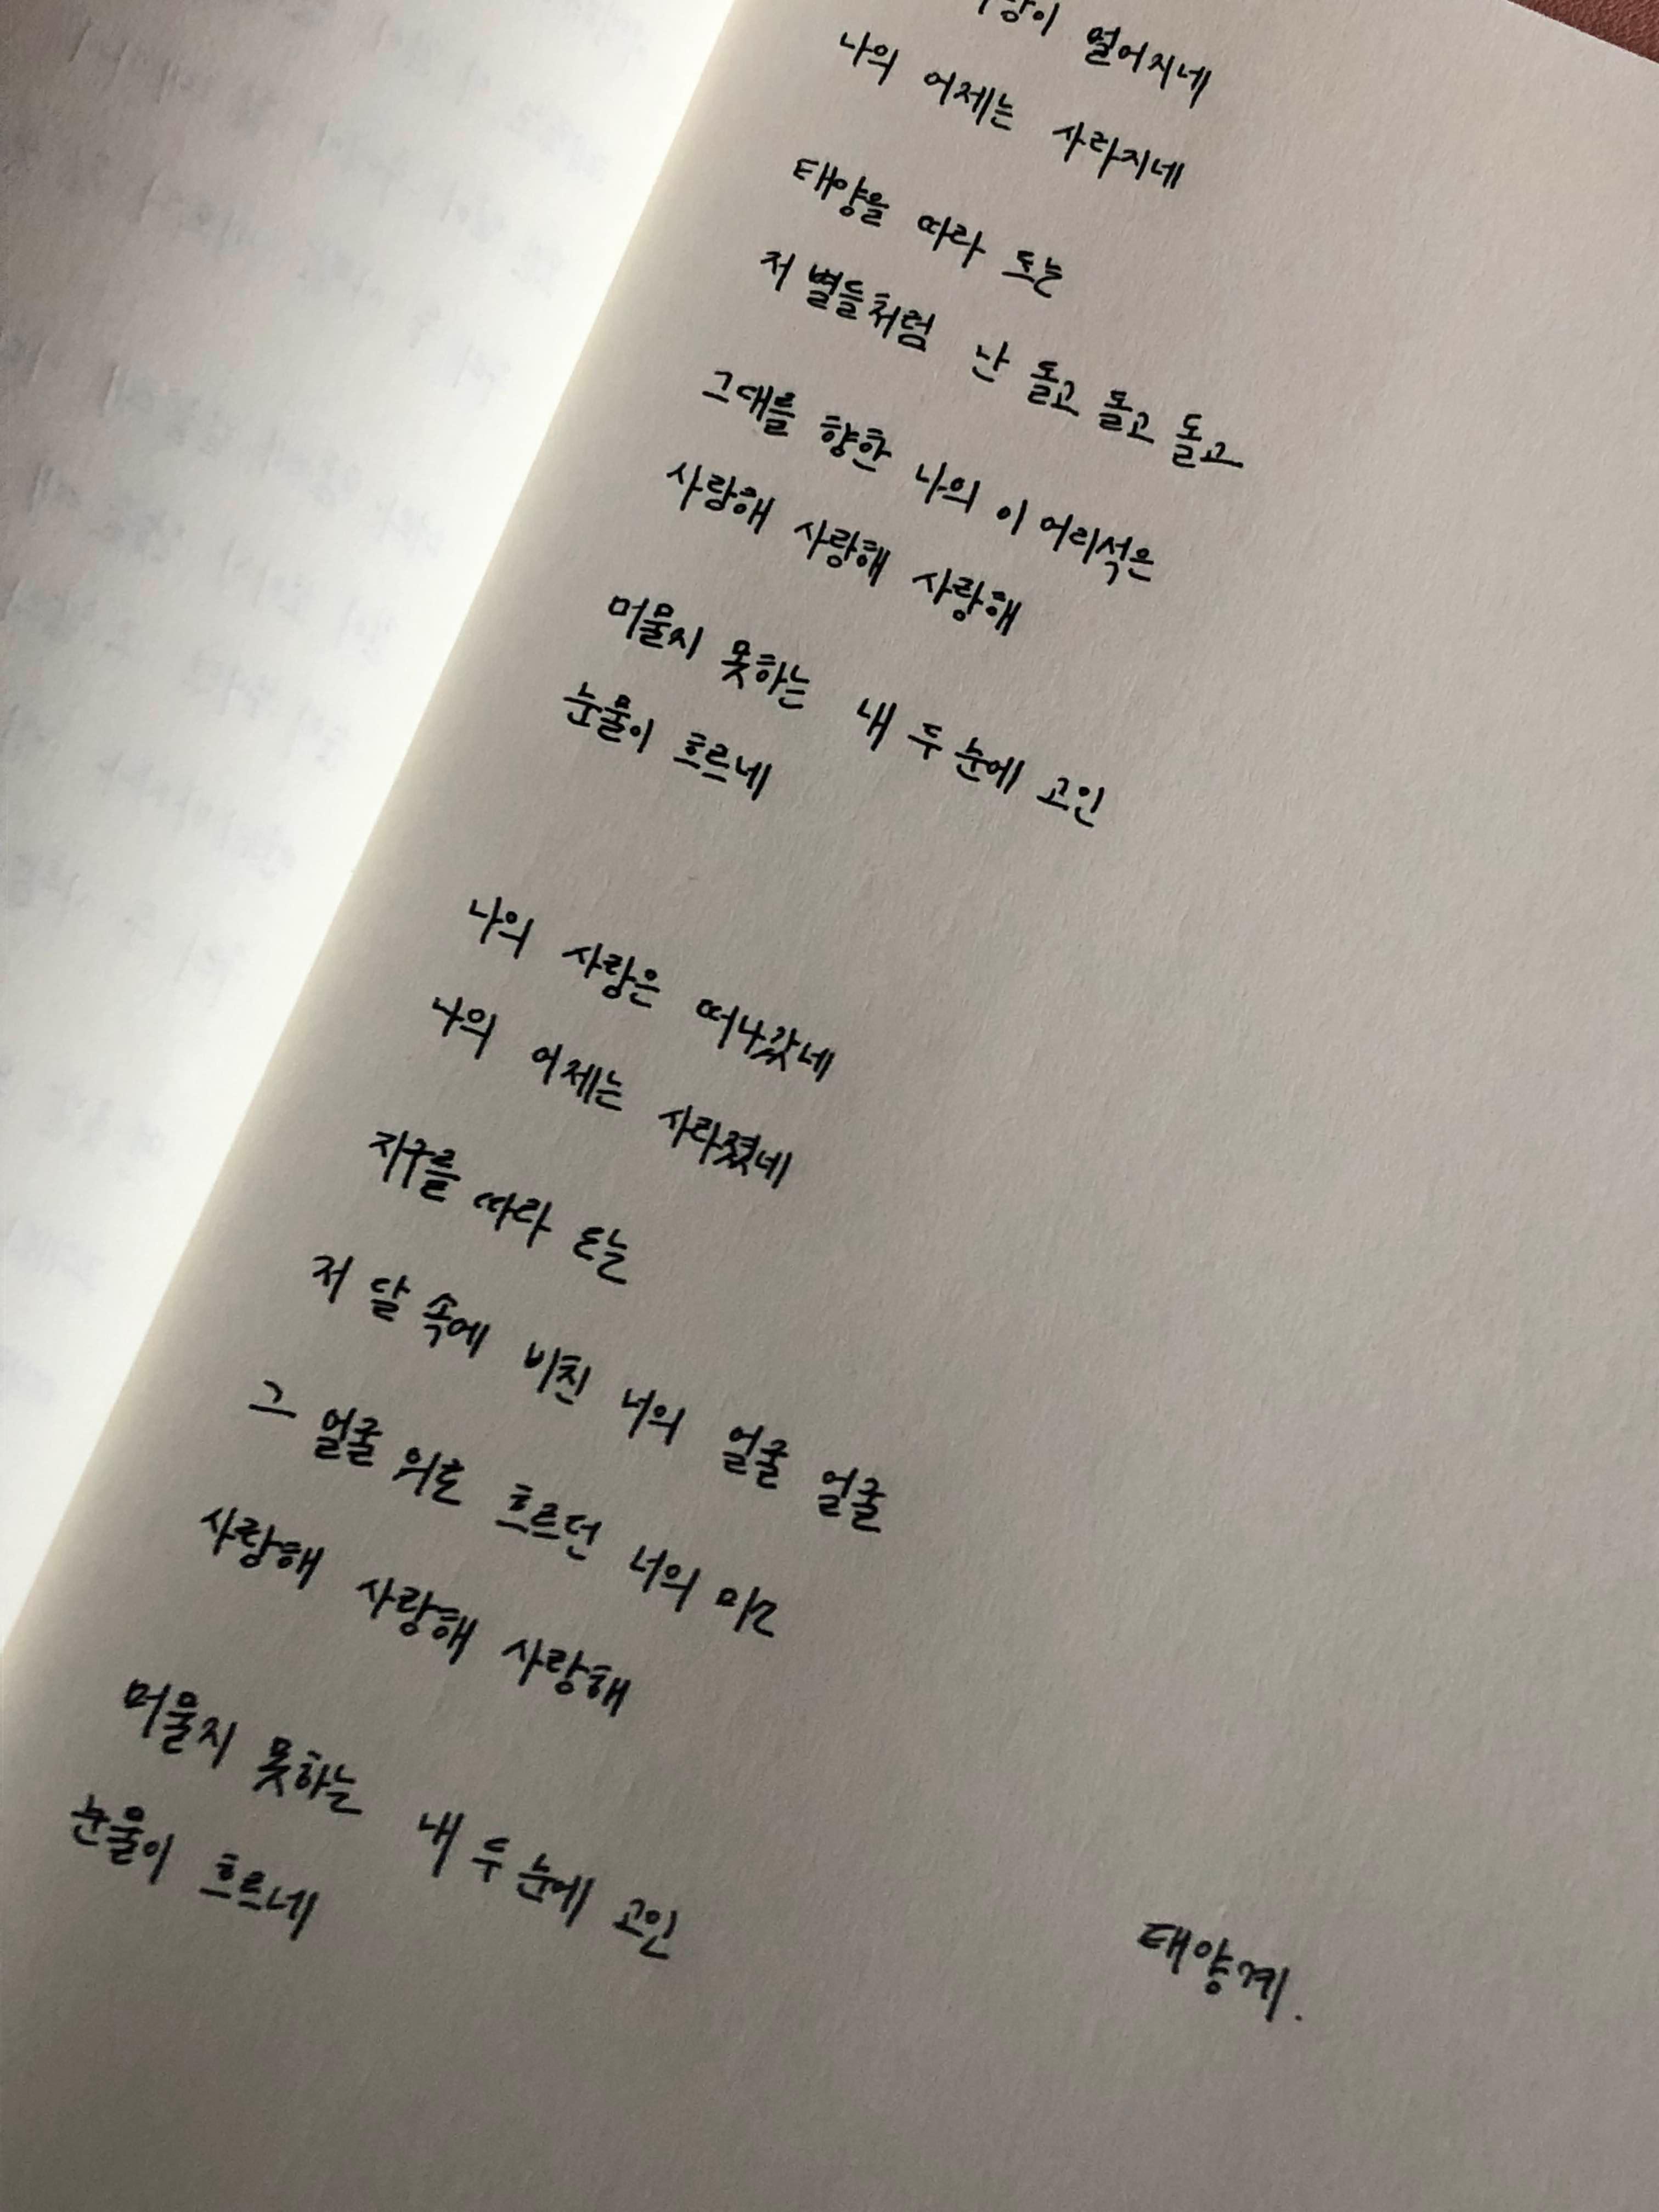 멀어지네
나의 어제는 사라지네
태양을 따라 도는
저 별들처럼 난 돌고 돌고 돌고
그대를 향한 나의 이 어리석은
사랑해 사랑해 사랑해
머물지 못하는 내 두 눈에 고인
눈물이 흐르네
나의 사랑은 떠나갔네
나의 어제는 사라졌네
지구를 따라 도는
저 달 속에 비친 너의 얼굴 얼굴
그 얼굴 위로 흐르던 너의
사랑해 사랑해 사랑해
머물지 못하는 내 두 눈에 고인
눈물이 흐르네
태양계.